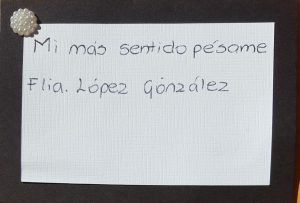 Mi más sentido pésame
Flia. López Gónzález